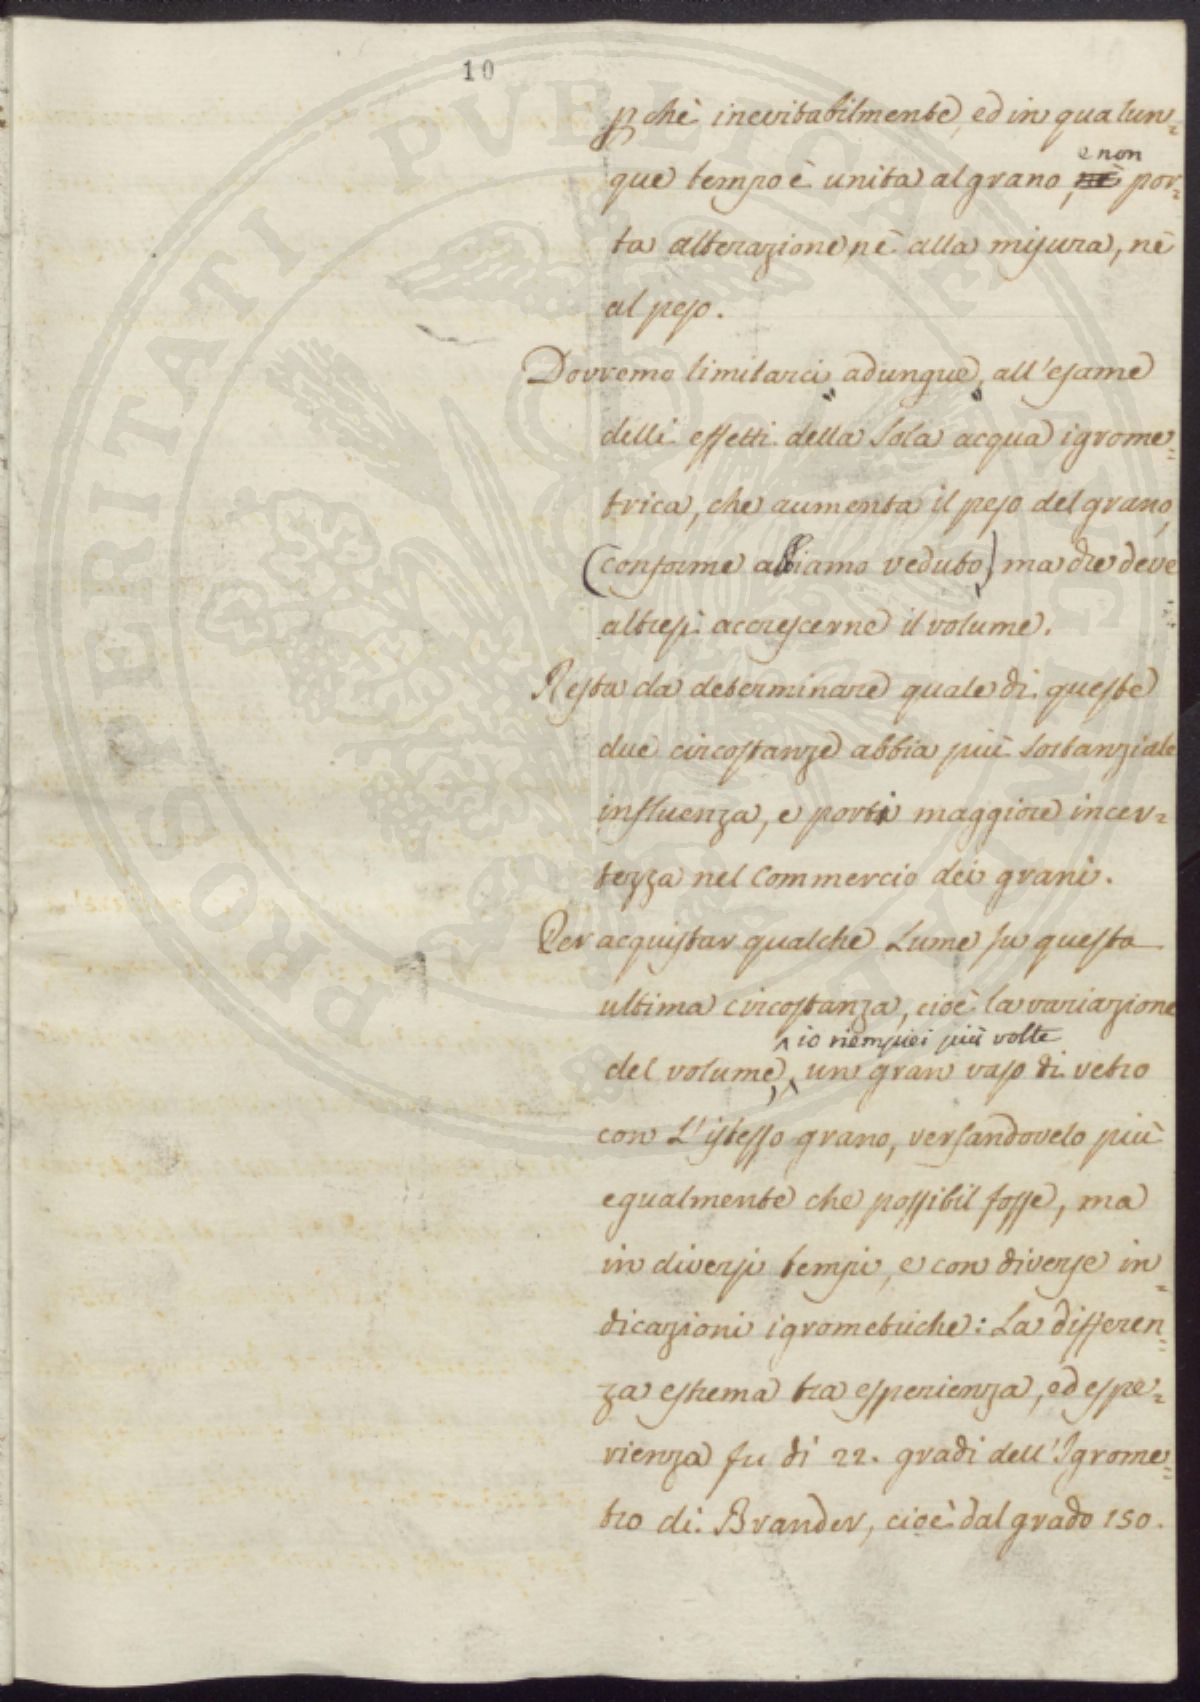 10
p chè inevitabilmente, ed in qualun=
que tempo è unita al grano, nè e non por=
ta alterazione nè alla misura, nè
al peso.
Dovremo limitarci adunque, all'esame
delli effetti della sola acqua igrome=
trica, che aumenta il peso del grano,
(conforme abbiamo veduto) ma che deve
altresì accrescerne il volume.
Resta da determinare quale di queste
due circostanze abbia più sostanziale
influenza, e porti maggiore incer=
tezza nel Commercio dei grani.
Per acquistar qualche Lume su questa
ultima circostanza, cioè la variazione
io riempiei più volte
del volume, un gran vaso di vetro
con L'istesso grano, versandovelo più
egualmente che possibil fosse, ma
in diversi tempi, e con diverse in=
dicazioni igrometriche: La differen=
za estrema tra esperienza, ed espe=
rienza fu di 22. gradi dell'Igrome=
tro di Brander, cioè dal grado 150.
PROSPERITATI PVBLICAE AVGENDAE